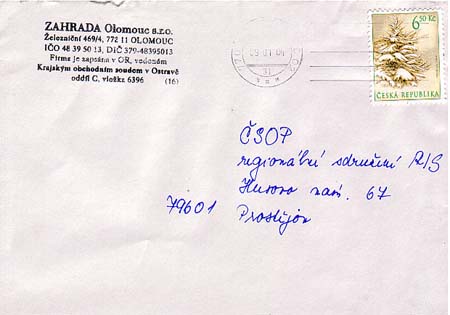 ZAHRADA Olomouc s.r.o.
Železniční 469/4, 772 11 OLOMOUC
IČO 48 39 50 13, DIČ 379-48395013
Firma je zapsána v OR, vedeném
Krajským obchodním soudem v Ostravě
oddíl C, vložka 6396 (16)
6,50 Kč
ČESKÁ REPUBLIKA
ČSOP
regionální sdružení RIS
Husovo nám. 67
79601 Prostějov